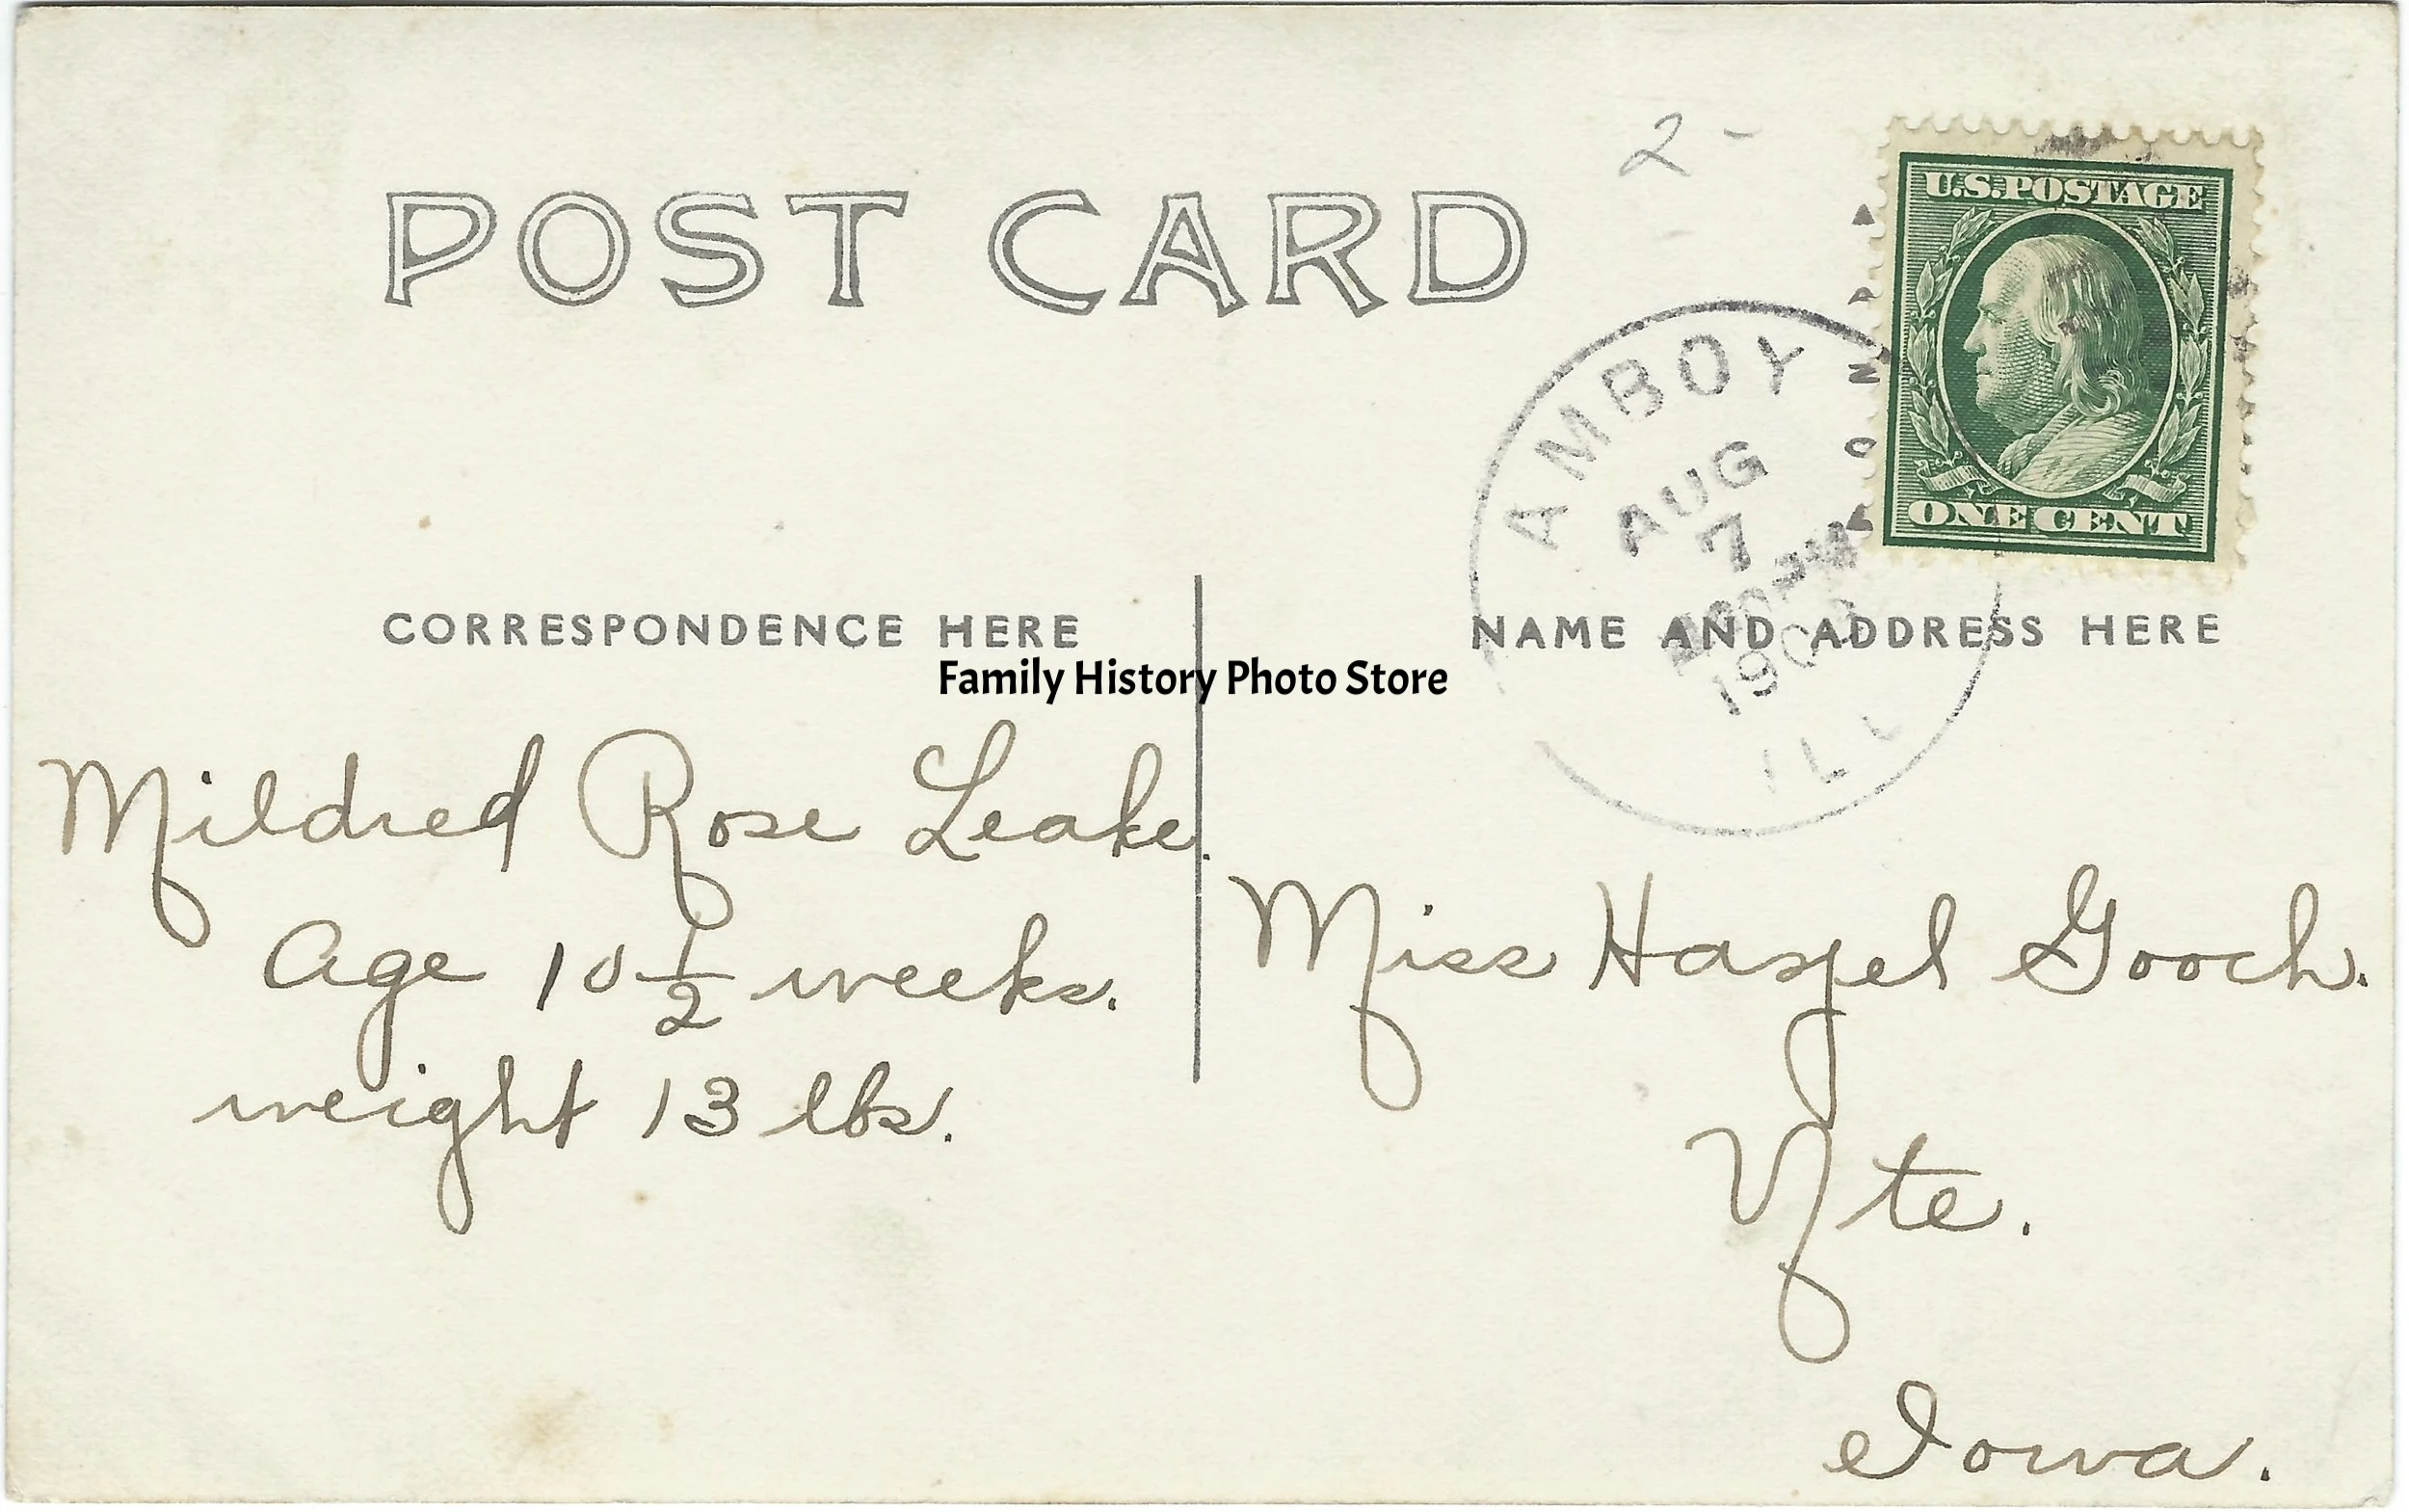 2-
POST CARD
U.S. POSTAGE
ONE CENT
AMBOY
AUG
7
ILL
CORRESPONDENCE HERE
NAME AND ADDRESS HERE
Family History Photo Store
Mildred Rose Leake.
Age 10 1/2 weeks.
weight 13 lbs.
Miss Hazel Gooch.
Yte.
Iowa.